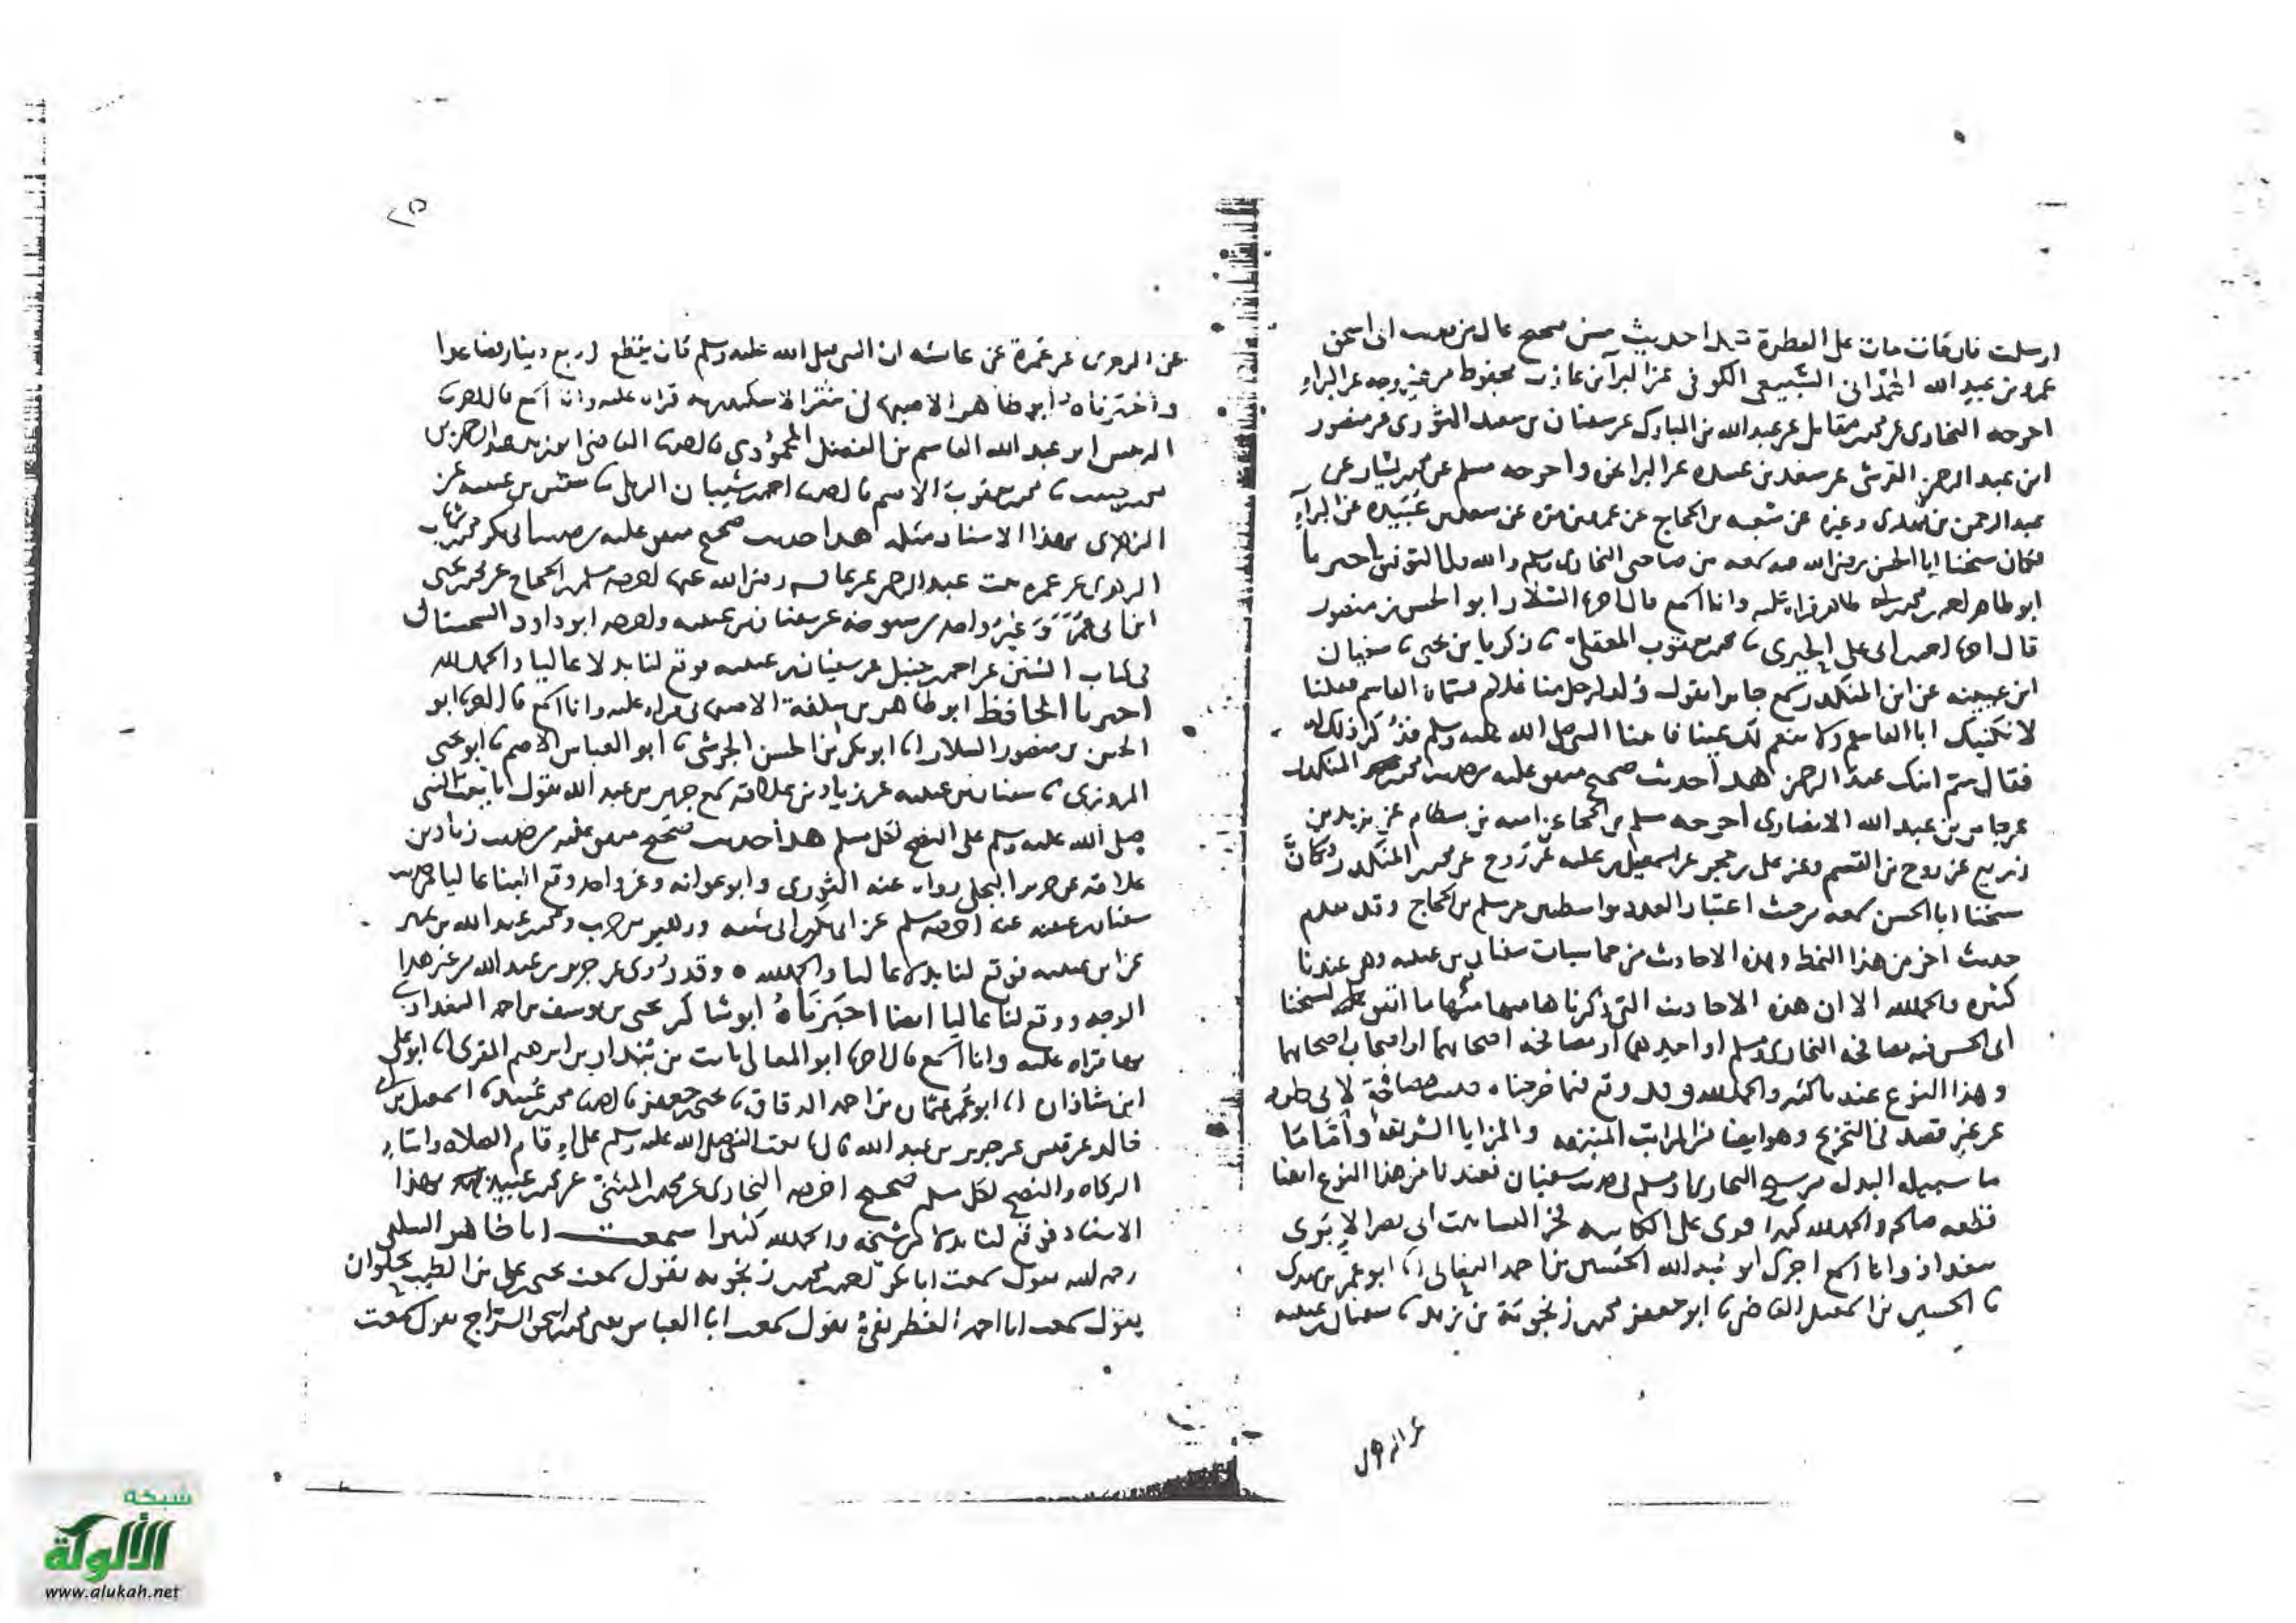 ارسلت فان مات مات على الفطرة هذا حديث حسن صحيح عال من حديث ابى اسحق
عمرو بن عبد الله الهمدانى السبيعى الكوفى عن البرآ بن عازب محفوظ من غير وجه عن البراء
اخرجه البخارى عن محمد بن مقاتل عن عبد الله بن المبارك عن سفيان بن سعيد الثورى عن منصور
عن سعد بن عبيده عن البرا بن عازب واخرجه مسلم عن محمد بن بشار عن
عبد الرحمن بن مهدى وغيره عن شعبه بن الحجاج عن عمرو بن مره عن سعد بن عبيدة عن البرآء
فكان شيخنا ابا الحسن رضى الله عنه سمعه من صاحبى البخارى ومسلم والله ولى التوفيق اخبرنا
ابو طاهر احمد بن محمد قراه عليه وانا اسمع قال اخبرنا السلار ابو الحسن بن منصور
قال اخبرنا احمد بن ابى على الحيرى محمد بن يعقوب المعقلى زكريا بن يحيى سفيان
ابن عيينه عن ابن المنكدر سمع جابرا يقول ولد لرجل منا غلام فسماه القاسم فقلنا
لا نكنيك ابا القاسم ولا ننعم لك عينا فاتينا النبى صلى الله عليه وسلم فذكر ذلك له
فقال سم ابنك عبد الرحمن هذا حديث صحيح متفق عليه من حديث محمد بن المنكدر
عن جابر بن عبد الله الانصارى اخرجه مسلم بن الحجاج عن اميه بن بسطام عن يزيد بن
زريع عن روح بن القسم وعن على بن حجر عن اسمعيل بن عليه عن روح عن محمد بن المنكدر فكان
شيخنا ابا الحسن سمعه من حيث اعتبار العدد من مسلم بن الحجاج وقد تقدم
حديث اخر من هذا النمط وهذه الاحاديث من خماسيات سفيان بن عيينه وهى عندنا
كثيره والحمد لله الا ان هذه الاحاديث التى ذكرناها ما اتفق لشيخنا
ابى الحسن فيه مصافحه البخارى ومسلم او احدهما او مصافحه اصحابهما او اصحاب اصحابهما
وهذا النوع عندنا كثير والحمد لله وقد وقع فيما خرجناه مصافحة لابى طاهر
عن غير قصد فى التخريج وهو ايضا من المراتب المنيفه والمزايا الشريفه وامّا ما
سبيله البدل من شيوخ البخارى ومسلم فى حديث سفيان فعندنا من هذا النوع ايضا
قطعه صالحه والحمد لله كثيرا قرى على الكاتبه فخر النسا بنت ابى نصر الابرى
ببغداد وانا اسمع اخبرك ابو عبد الله الحسين بن احمد النعالى ابو عمر بن مهدى
الحسين بن اسمعيل القاضى ابو جعفر محمد بن زنجويه بن يزيد سفيان بن عيينه
عن الزهرى عن عمرة عن عائشه ان النبى صلى الله عليه وسلم كان يقطع فى ربع دينار فصاعدا
واخبرناه ابو طاهر الاصبهانى بثغر الاسكندريه قراه عليه وانا اسمع قال اخبرنا
الرئيس ابو عبد الله القاسم بن الفضل المحمودى قال حدثنا القاضى ابو زيد عبد الرحمن بن
محمد بن يعقوب الاصم قال حدثنا احمد بن شيبان الرملى سفين بن عيينه عن
الزهرى بهذا الاسناد مثله هذا حديث صحيح متفق عليه من حديث ابى بكر محمد بن شهاب
الزهرى عن عمره بنت عبد الرحمن عن عائشه رضى الله عنها اخرجه مسلم بن الحجاج عن محمد بن يحيى
ابن ابى عمر وغير واحد من شيوخه عن سفيان بن عيينه واخرجه ابو داود السجستانى
فى كتاب السنن عن احمد بن حنبل عن سفيان بن عيينه فوقع لنا بدلا عاليا والحمد لله
اخبرنا الحافظ ابو طاهر بن سلفة الاصبهانى قراه عليه وانا اسمع قال اخبرنا ابو
الحسن بن منصور السلار ابو بكر بن الحسن الحرشى ابو العباس الاصم ابو يحيى
المروزى سفيان بن عيينه عن زياد بن علاقه سمع جرير بن عبد الله يقول بايعت النبى
صلى الله عليه وسلم على النصح لكل مسلم هذا حديث صحيح متفق عليه من حديث زياد بن
علاقه عن جرير البجلى رواه عنه الثورى وابو عوانه وغير واحد وقع الينا عاليا من حديث
سفيان بن عيينه عنه اخرجه مسلم عن ابى بكر بن ابى شيبه وزهير بن حرب ومحمد بن عبد الله بن نمير
عن ابن عيينه فوقع لنا بدلا عاليا والحمد لله وقد روى عن جرير بن عبد الله من غير هذا
الوجه ووقع لنا عاليا ايضا اخبرناه ابو شاكر يحيى بن يوسف بن احمد البغدادى
بها قراه عليه وانا اسمع قال اخبرنا ابو المعالى ثابت بن بندار بن ابرهيم المقرى ابو على
ابن شاذان ابو عمر عثمان بن احمد الدقاق يحيى بن جعفر قال حدثنا محمد بن عبيد اسمعيل بن ابى
خالد عن قيس عن جرير بن عبد الله قال بايعت النبى صلى الله عليه وسلم على اقام الصلاه وايتاء
الزكاه والنصح لكل مسلم صحيح اخرجه البخارى عن محمد بن المثنى عن محمد بن عبيد بهذا
الاسناد فوقع لنا بدلا من شيخه والحمد لله كثيرا سمعت ابا طاهر السلفى
رحمه الله يقول سمعت ابا بكر احمد بن محمد بن زنجويه يقول سمعت يحيى بن على بن الطيب بحلوان
يقول سمعت ابا احمد الغطريفى يقول سمعت ابا العباس يعنى محمد بن اسحق السراج يقول سمعت
شبكة
الألوكة
www.alukah.net